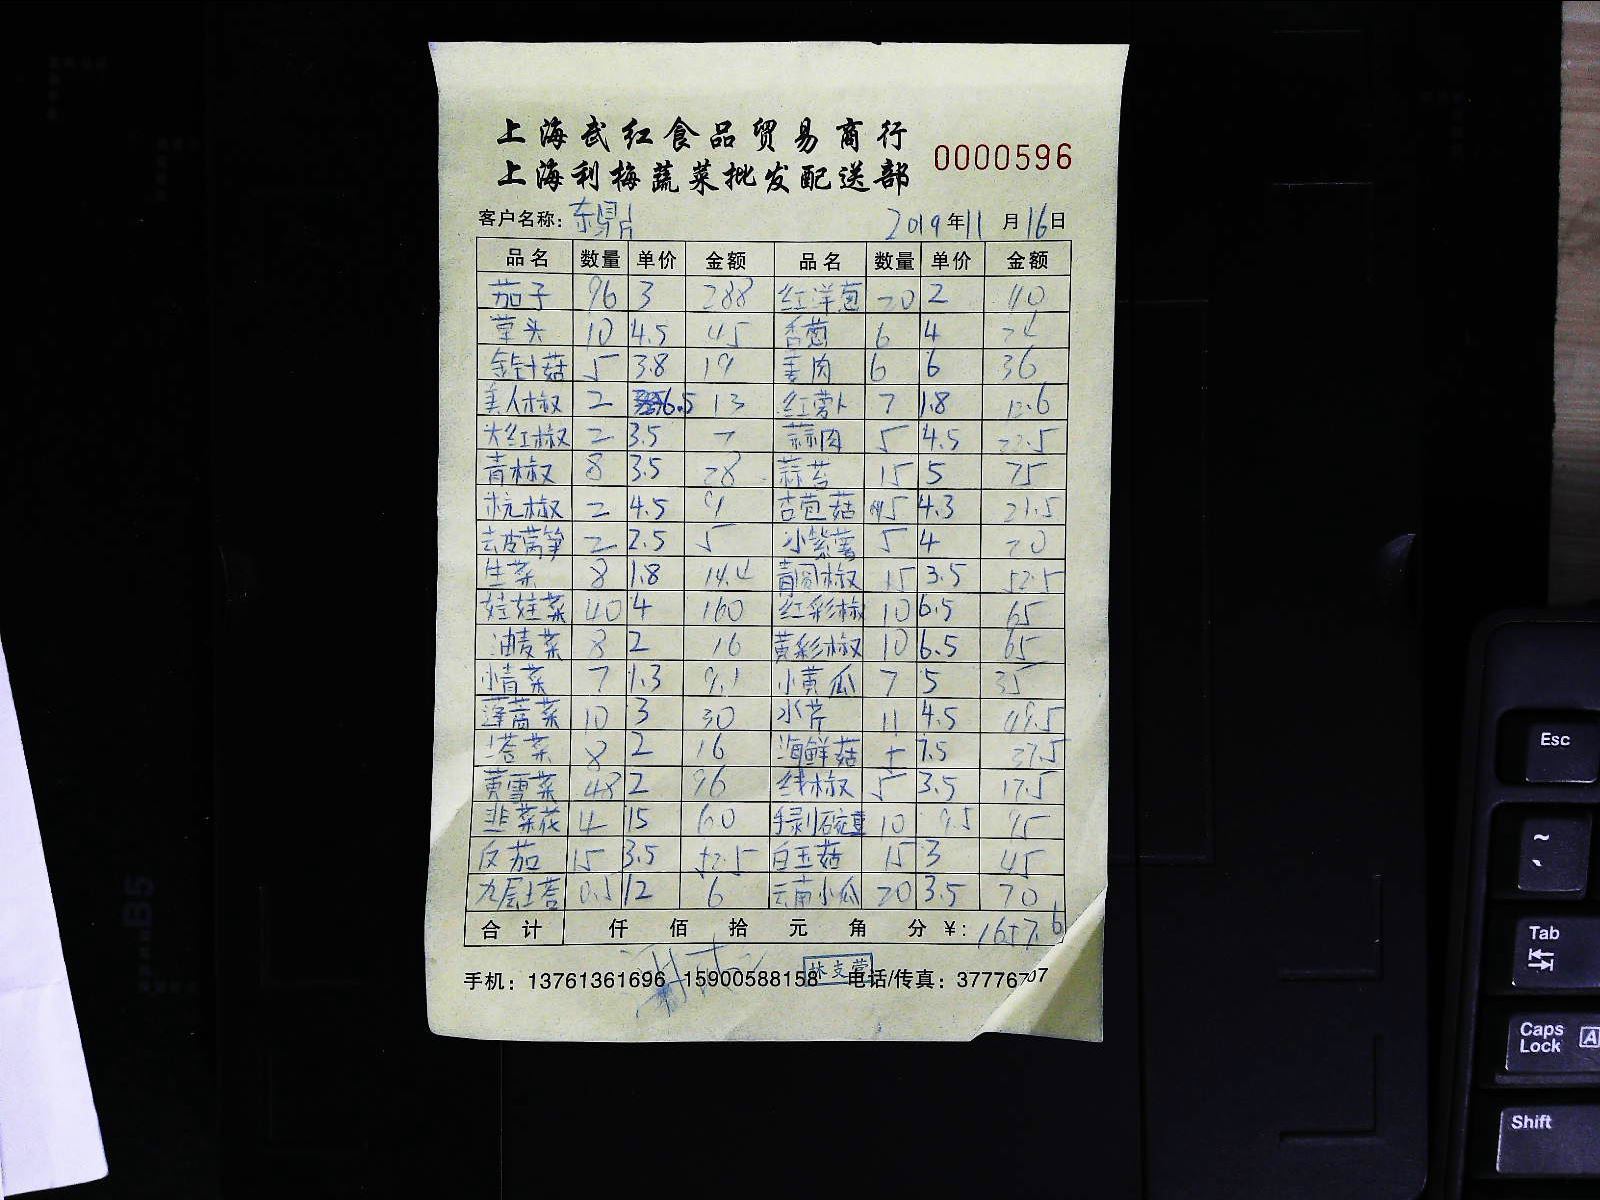 上海武红食品贸易商行
上海利梅蔬菜批发配送部
0000596
客户名称: 东鼎 2019年11月16日
品名 数量 单价 金额 品名 数量 单价 金额
茄子 96 3 288 红洋葱 20 2 40
草头 10 4.5 45 香葱 6 4 24
金针菇 5 3.8 19 姜肉 6 6 36
美人椒 2 6.5 13 红萝卜 7 1.8 12.6
大红椒 2 3.5 7 蒜肉 5 4.5 22.5
青椒 8 3.5 28 蒜苔 15 5 75
杭椒 2 4.5 9 杏苞菇 5 4.3 21.5
去皮莴笋 2 2.5 5 小紫薯 5 4 20
生菜 8 1.8 14.4 青圆椒 15 3.5 52.5
娃娃菜 40 4 160 红彩椒 10 6.5 65
油麦菜 8 2 16 黄彩椒 10 6.5 65
小青菜 7 1.3 9.1 小黄瓜 7 5 35
蓬蒿菜 10 3 30 水芹 11 4.5 49.5
塔菜 8 2 16 海鲜菇 5 7.5 37.5
黄雪菜 48 2 96 线椒 5 3.5 17.5
韭菜花 4 15 60 手剥豌豆 10 9.5 95
反茄 15 3.5 52.5 白玉菇 15 3 45
九层塔 0.5 12 6 云南小瓜 20 3.5 70
合计 仟 佰 拾 元 角 分 ¥: 1657.6
手机: 13761361696 15900588158 电话/传真: 37776707
林支营
B5
Esc
~
Tab
Caps Lock
A
Shift